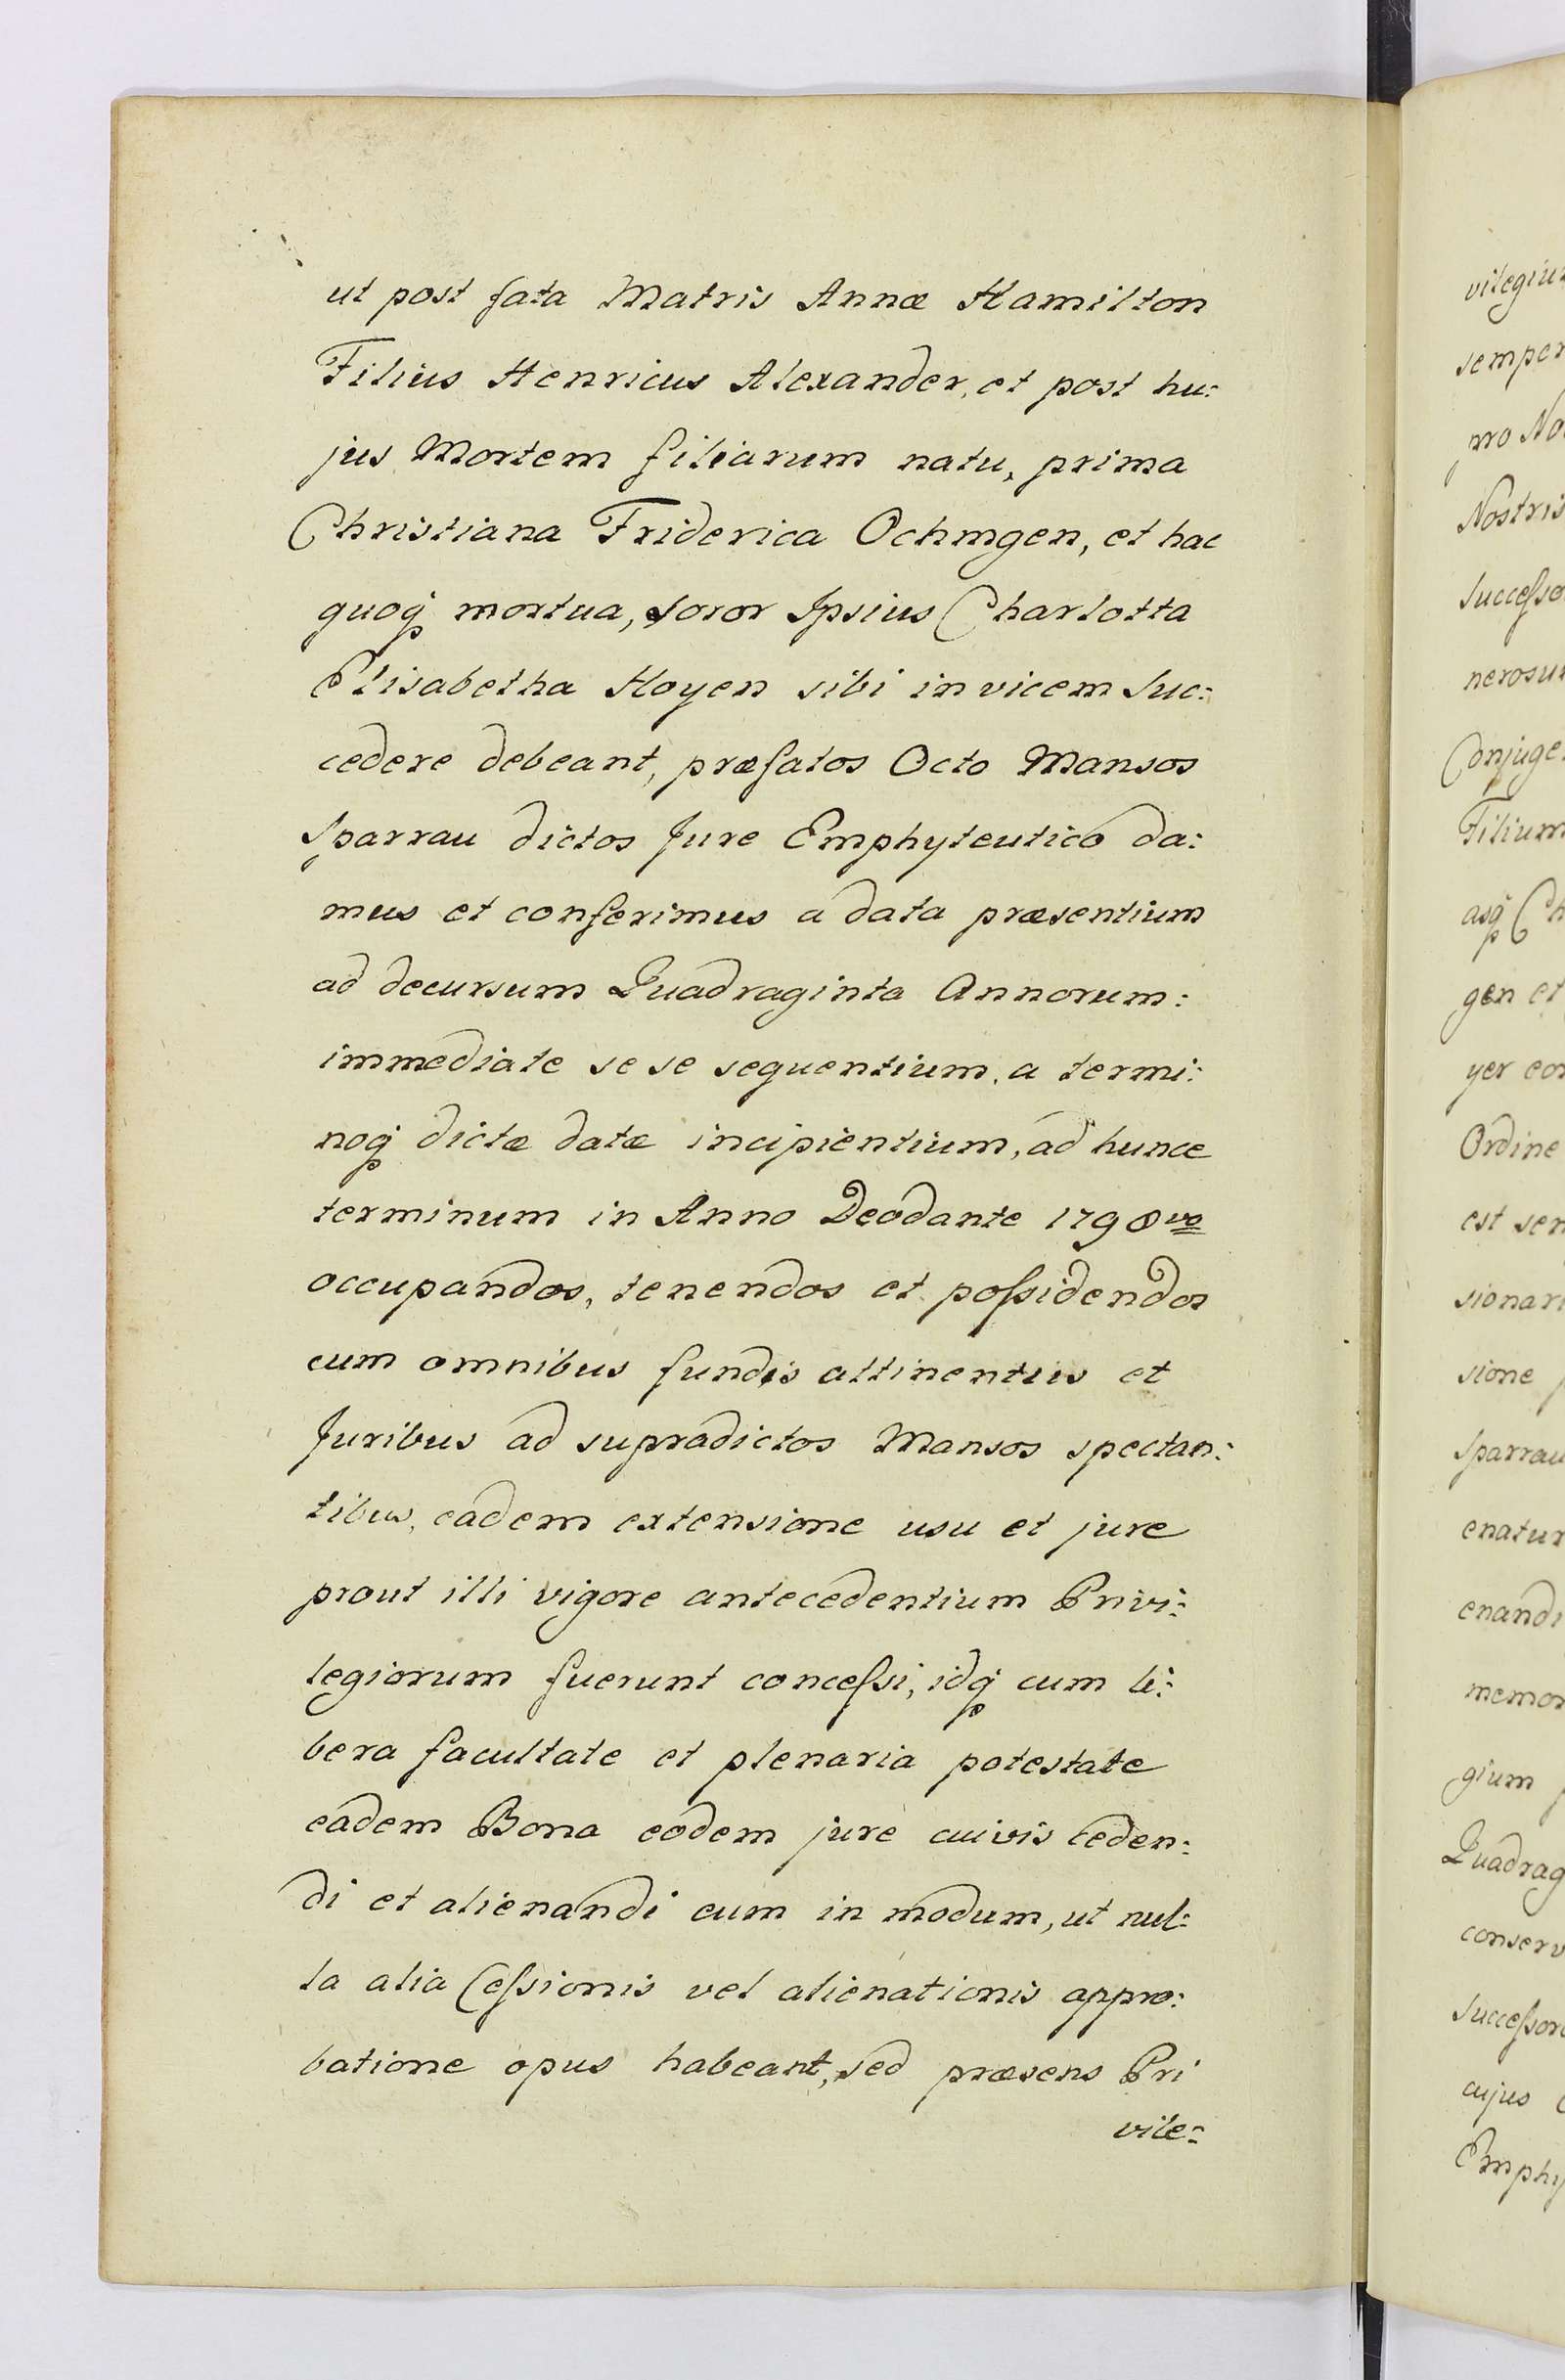 ut post fata Matris Annæ Hamilton
Filius Henricus Alexander, et post hu:
jus Mortem filiarum natu, prima
Christiana Friderica Ochmgen, et hac
quoq mortua, soror Ipsius Charlotta
Elisabetha Hoyen sibi in vicem suc:
cedere debeant, præfatos Octo Mansos
Sparrau dictos Jure Emphyteutico da:
mus et conferimus a data præsentium
ad decursum Quadraginta Annorum:
immediate se se sequentium, a termi:
noq dictæ datæ incipientium, ad hunce
terminum in Anno Deodante 1798vo
occupandos, tenendos et poſsidendos
cum omnibus fundis attinentiis et
Juribus ad supradictos Mansos spectan:
tibus, eadem extensione usu et jure
prout illi vigore antecedentium Privi:
legiorum fuerunt conceſsi, idq cum li:
bera facultate et plenaria potestate
eadem Bona eodem jure cuivis ceden:
di et alienandi eum in modum, ut nul:
la alia Ceſsionis vel alienationis appro:
batione opus habeant, sed præsens Pri
vile:
vilegiu
semper
pro No
Nostris
Succeſso
nerosu
Conjuge
Filium
asq Ch
gen et
yer eor
Ordine
est ser
sionari
sione
Sparrau
enatur
enandi
memor
gium
Quadrag
conserv
Succeſsor
cujus
Emphy